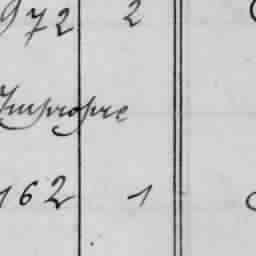 972 2
Impropre
162 1